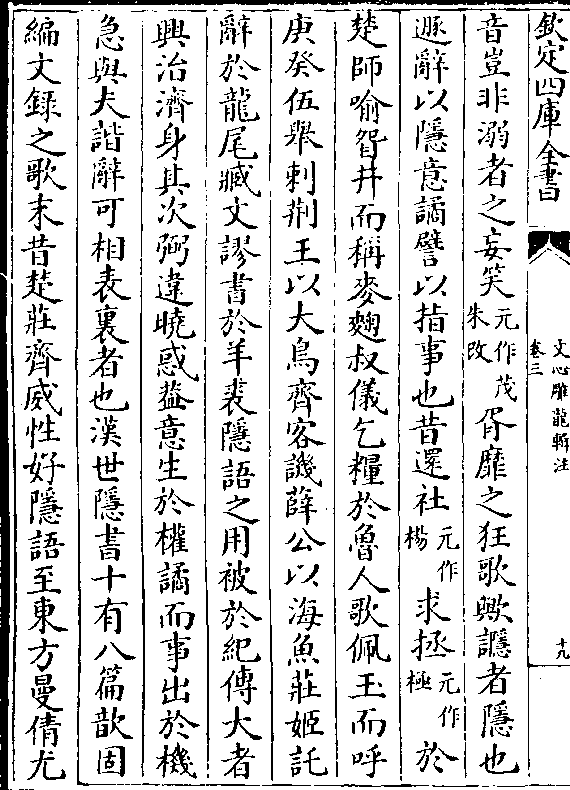 欽定四庫全書
文心雕龍輯注
卷三
十九
音豈非溺者之妄笑元作茂朱改胥靡之狂歌歟讔者隱也
遯辭以隱意譎譬以指事也昔還社元作楊求拯元作極於
楚師喻眢井而稱麥麴叔儀乞糧於魯人歌佩玉而呼
庚癸伍舉刺荆王以大鳥齊客譏薛公以海魚莊姬託
辭於龍尾臧文謬書於羊裘隱語之用被於紀傳大者
興治濟身其次弼違曉惑葢意生於權譎而事出於機
急與夫諧辭可相表裏者也漢世隱書十有八篇歆固
編文錄之歌末昔楚莊齊威性好隱語至東方曼倩尤